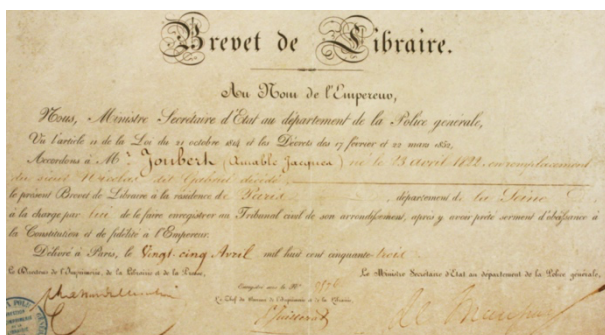 Brevet de Libraire.
Au Nom de l'Empereur,
Nous, Ministre Secrétaire d'Etat au département de la Police générale,
Vu l'article 11 de la Loi du 21 octobre 1814 et les Décrets des 17 février et 22 mars 1852,
Accordons à Mr. Joubert (Amable Jacques) né le 13 avril 1822, en remplacement
du sieur Nicolas dit Gabriel décédé,
le présent Brevet de Libraire à la résidence de Paris département de la Seine
à la charge par lui de le faire enregistrer au Tribunal civil de son arrondissement, après y avoir prêté serment d'obéissance à
la Constitution et de fidélité à l'Empereur.
Délivré à Paris, le Vingt cinq Avril mil huit cent cinquante trois
Le Directeur de l'Imprimerie, de la Librairie et de la Presse, Le Ministre Secrétaire d'Etat au département de la Police générale,
Enregistré sous le No
Le Chef du Bureau de l'Imprimerie et de la Librairie,